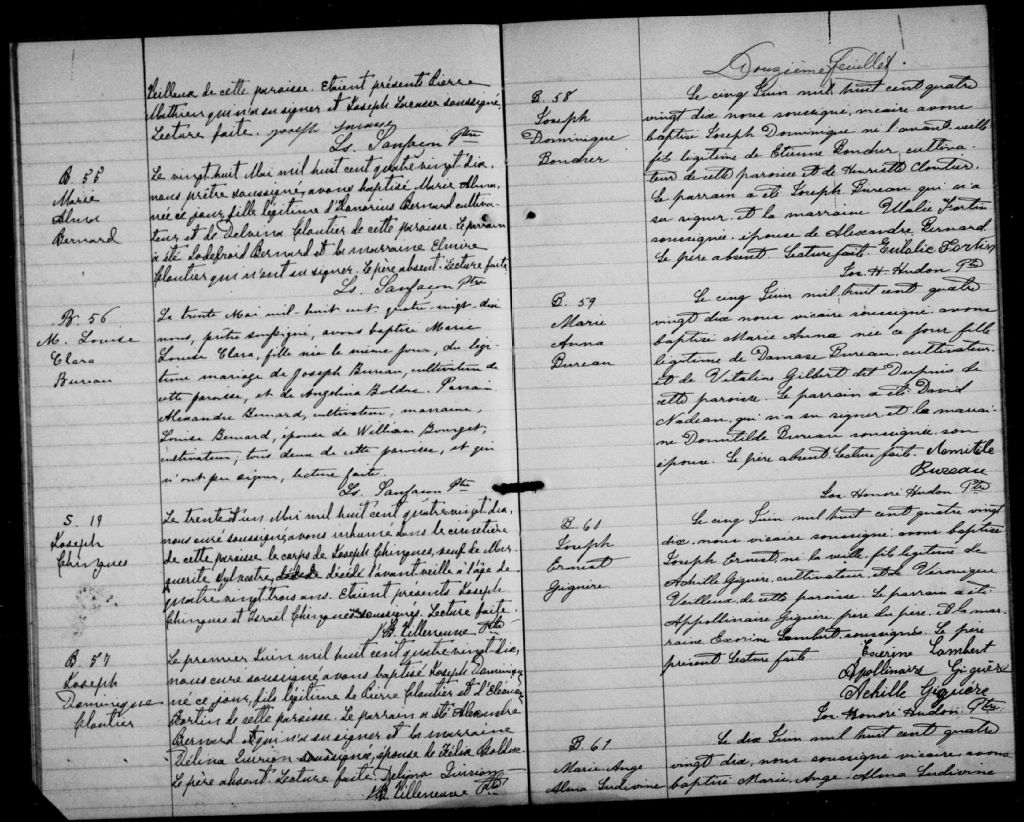 Veilleux de cette paroisse. Etaient présents Pierre
Mathieu qui n'a su signer et Joseph Lacasse soussigné.
Lecture faite. Joseph Lacasse
Ls. Sanfaçon Ptre
B. 55
Marie
Alma
Bernard
Le vingt huit Mai mil huit cent quatre vingt dix,
nous prêtre soussigné, avons baptisé Marie Alma,
née ce jour, fille légitime d'Honorius Bernard cultiva-
teur et de Delvina Cloutier de cette paroisse. Le parrain
a été Godefroid Bernard et la marraine Elmire
Cloutier qui n'ont su signer. Le père absent. Lecture faite.
Ls. Sanfaçon Ptre
B. 56
M. Louise
Clara
Bureau
Le trente Mai mil huit cent quatre vingt dix
nous, prêtre soussigné, avons baptisé Marie
Louise Clara, fille née le même jour, du légi-
time mariage de Joseph Bureau, cultivateur de
cette paroisse, et de Angelina Bolduc. Parrain
Alexandre Bernard, cultivateur, marraine,
Louise Bernard, épouse de William Bourget,
cultivateur, tous deux de cette paroisse, et qui
n'ont pu signer, lecture faite.
Ls. Sanfaçon Ptre
S. 19
Joseph
Chingues
Le trente d'un Mai mil huit cent quatre vingt dix,
nous curé soussigné avons inhumé dans le cimetière
de cette paroisse le corps de Joseph Chingues, veuf de Mar-
guerite Sylvestre, décédé l'avant veille à l'âge de
quatre vingt trois ans. Etaient présents Joseph
Chingues et Israël Chingues soussignés. Lecture faite.
J.B. Villeneuve Ptre
B. 57
Joseph
Dominique
Cloutier
Le premier Juin mil huit cent quatre vingt dix,
nous curé soussigné avons baptisé Joseph Dominique
né ce jour, fils légitime de Pierre Cloutier et d'Eleonore
Fortin de cette paroisse. Le parrain a été Alexandre
Bernard et qui n'a su signer et la marraine
Délina Quirion soussignée, épouse de Félix Bolduc.
Le père absent. Lecture faite. Délima Quirion
J.B. Villeneuve Ptre
Douzième feuillet.
B. 58
Joseph
Dominique
Boucher
Le cinq Juin mil huit cent quatre
vingt dix nous soussigné, vicaire avons
baptisé Joseph Dominique né l'avant veille
fils légitime de Etienne Boucher, cultiva-
teur de cette paroisse et de Henriette Cloutier.
Le parrain a été Joseph Bureau qui n'a
su signer, et la marraine Ulalie Fortin
soussignée, épouse de Alexandre Bernard.
Le père absent. Lecture faite. Eulalie Fortin
Jos. H. Hudon Ptre
B. 59
Marie
Anna
Bureau
Le cinq Juin mil huit cent quatre
vingt dix nous vicaire soussigné avons
baptisé Marie Anna née ce jour fille
légitime de Damase Bureau, cultivateur,
et de Vitaline Gilbert dit Dupuis de
cette paroisse. Le parrain a été David
Nadeau, qui n'a su signer, et la marrai-
ne Domitilde Bureau soussignée, son
épouse. Le père absent. Lecture faite. Domitile
Bureau
Jos. Honoré Hudon Ptre
B. 60
Joseph
Ernest
Giguère
Le cinq Juin mil huit cent quatre vingt
dix, nous vicaire soussigné, avons baptisé
Joseph Ernest, né la veille, fils légitime de
Achille Giguère, cultivateur, et de Véronique
Veilleux, de cette paroisse. Le parrain a été
Appollinaire Giguère père du père, et la mar-
raine Exorine Lambert, soussignés. Le père
présent. Lecture faite Exorine Lambert
Apolinard Giguère
Achille Giguère
Jos. Honoré Hudon Ptre
B. 61
Marie Ange
Alma Ludivine
Le dix Juin mil huit cent quatre
vingt dix, nous soussigné vicaire, avons
baptisé Marie, Ange, Alma Ludivine